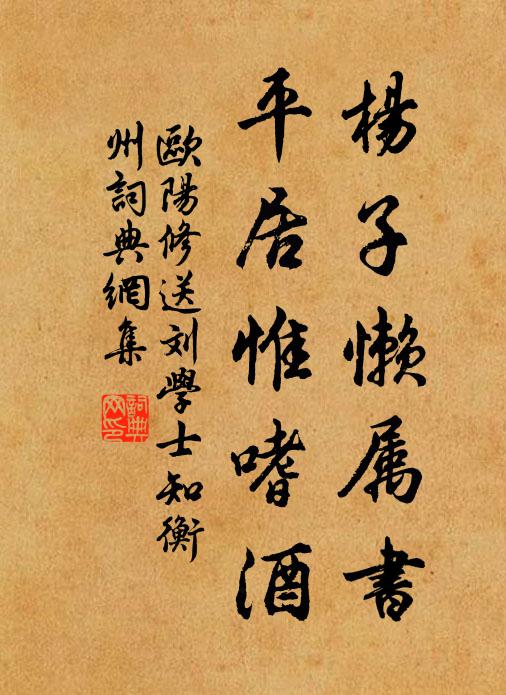 楊子懒属書
平居惟嗜酒
歐陽修送刘學士知衡
州詞典網集
詞典網印